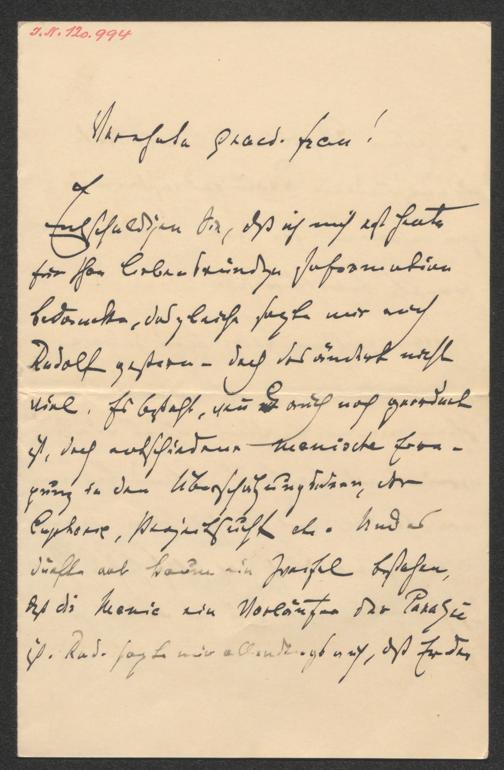 I.N. 120.994
Verehrte gnaed. Frau!
Entschuldigen Sie, daß ich mich erst heute
für Ihre liebenswürdige Information
bedanke, das gleiche sagte mir auch
Rudolf gestern – doch das ändert nicht
viel. Es besteht, wenn Er auch noch geordnet
ist, doch entschiedene manische Erre-
gung in den Überschätzungsideen, der
Euphorie, Projectsucht etc. Und es
dürfte wol kaum ein Zweifel bestehen,
daß die Manie ein Vorläufer der Paralyse
ist. Rud. sagte mir allerdings auch, daß Er den